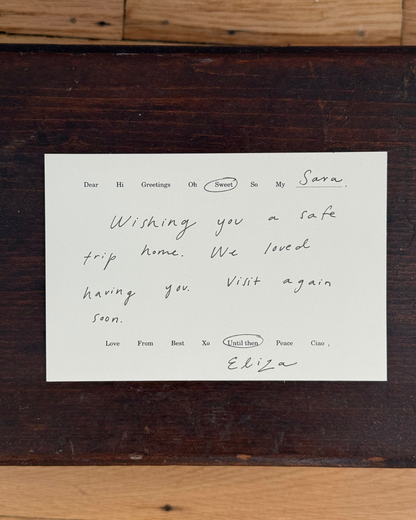 Dear Hi Greetings Oh Sweet So My Sara.
Wishing you a safe
trip home. We loved
having you. Visit again
soon.
Love From Best Xo Until then Peace Ciao ,
Eliza